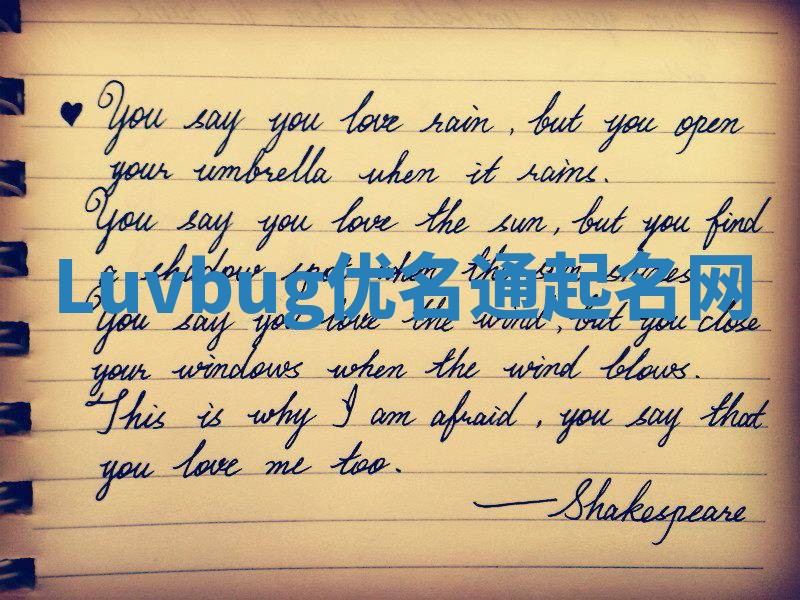 ♥ You say you love rain, but you open
your umbrella when it rains.
You say you love the sun, but you find
a shadow spot when the sun shines
Luvbug优名通起名网
You say you love the wind, but you close
your windows when the wind blows.
This is why I am afraid, you say that
you love me too.
— Shakespeare